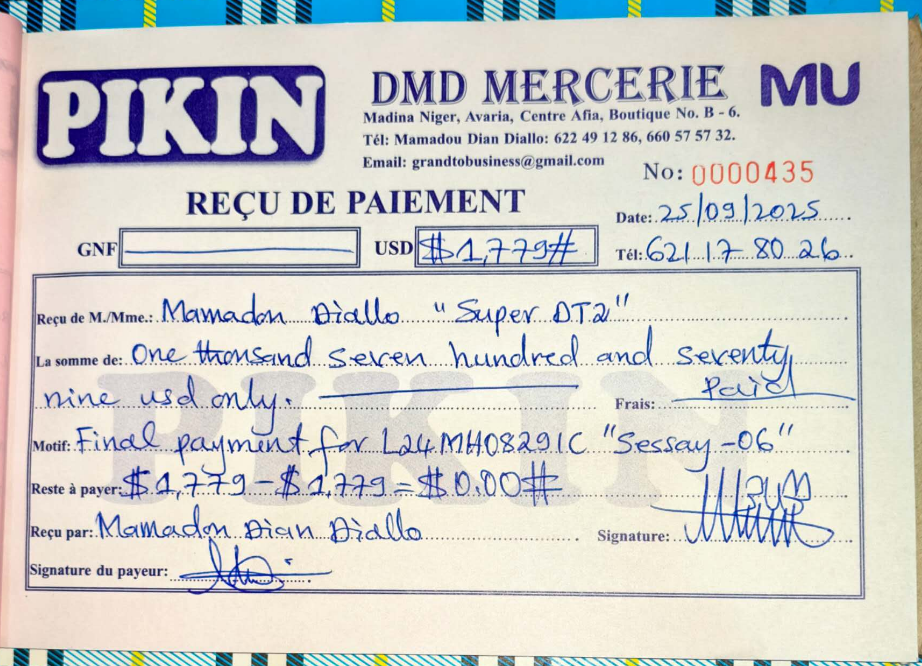 PIKIN
DMD MERCERIE
MU
Madina Niger, Avaria, Centre Afia, Boutique No. B - 6.
Tél: Mamadou Dian Diallo: 622 49 12 86, 660 57 57 32.
Email: grandtobusiness@gmail.com
No: 0000435
REÇU DE PAIEMENT
Date: 25/09/2025
GNF
USD $1,779#
Tél: 621 17 80 26
Reçu de M./Mme.: Mamadou Diallo "Super DT2"
La somme de: One thousand seven hundred and seventy
nine usd only.
Frais: Paid
Motif: Final payment for L24MH08291C "Sessay-06"
Reste à payer: $1,779 - $1,779 = $0.00#
Reçu par: Mamadou Dian Diallo
Signature:
Signature du payeur:
PIKIN